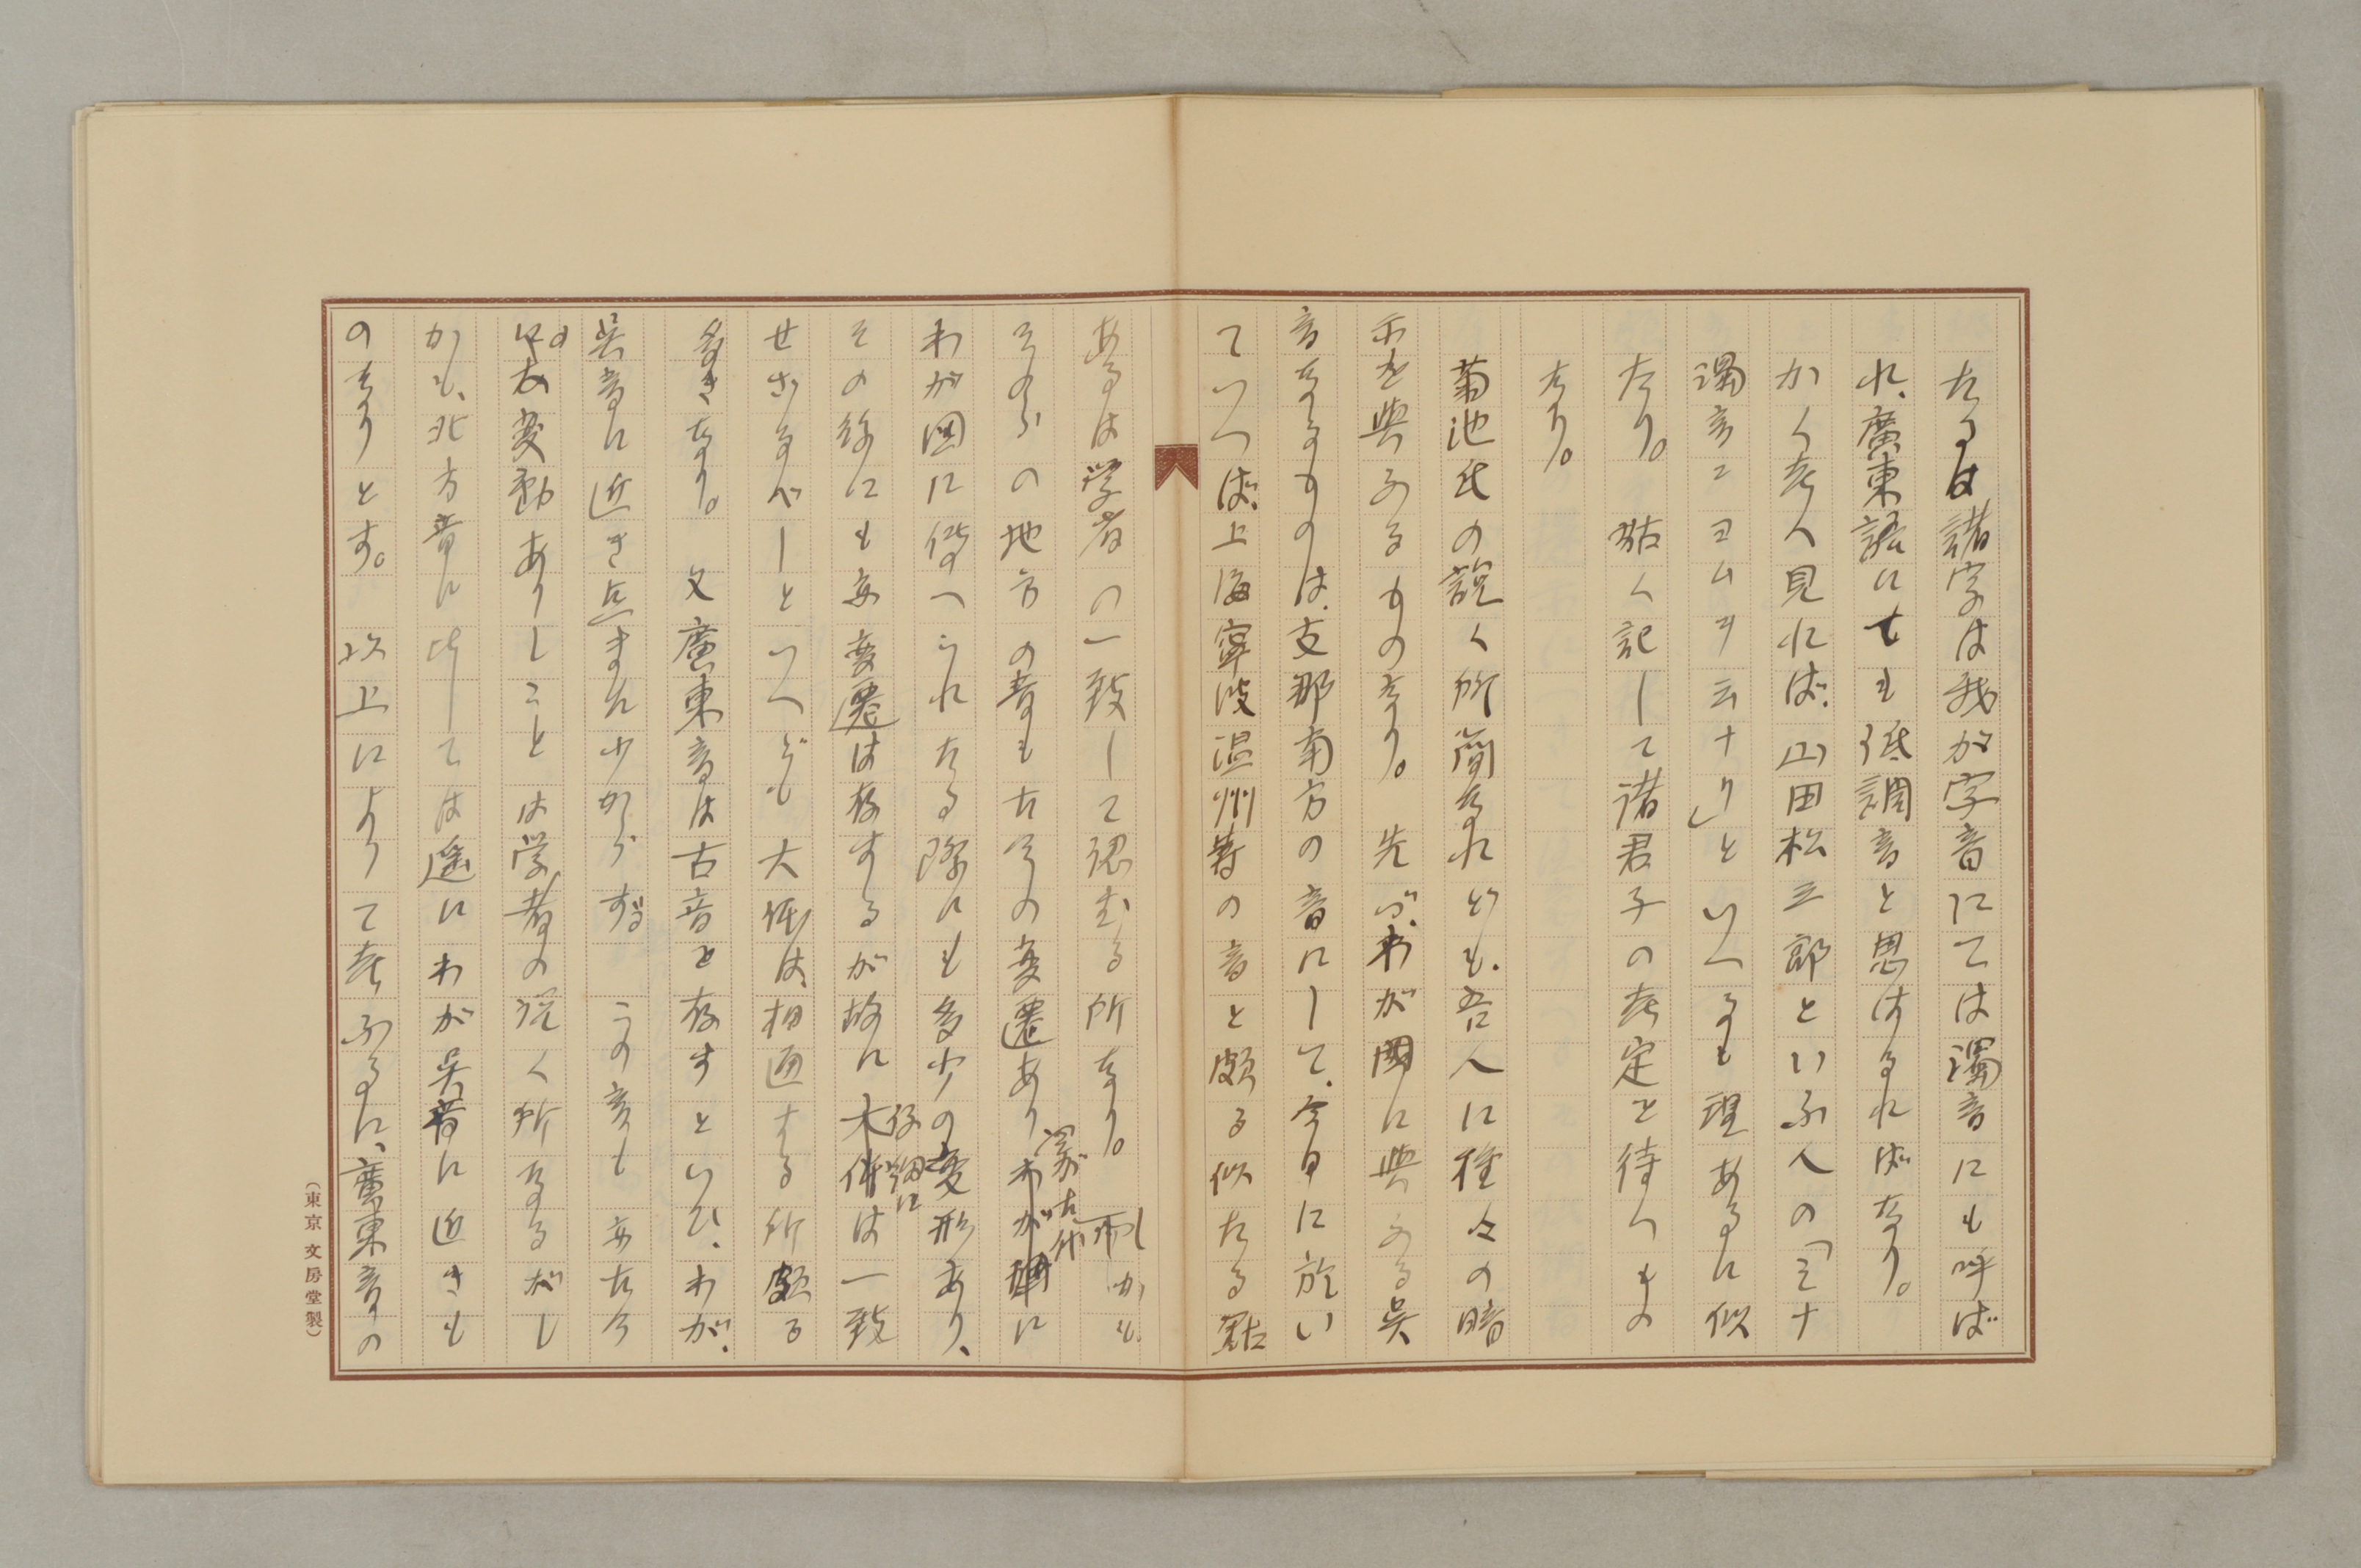 たるは諸字は我が字音にては濁音にも呼ば
れ、廣東語にても低調音と思はるればなり。
かく考へ見れば、山田松三郎といふ人の「ミナ
濁音ニヨムヲ云ナリ」といへるも理あるに似
たり。 姑く記して諸君子の考定を待つもの
なり。
菊池氏の説く所簡なれども、吾人に種々の暗
示を與ふるものなり。 先づ、わが國に與ふる呉
音なるものは、支那南方の音にして、今日に於い
ていへば、上海寧波温州等の音と頗る似たる點
あるは学者の一致して認むる所なり。 而かも
そのらの地方の音も古来の変遷ありわが古代に
わが国に傳へられたる際にも多少の変形あり、
その後にも亦変遷は存するが故に仔細には一致
せざるべしといへども大体は、相通する所頗る
多きなり。 又廣東音は古音を存すといひ、わが、
呉音に近き点また少からず この音も亦古今
の変動ありしことは学者の説く所なるがし
かも、北方音に比しては遥にわが呉音に近きも
のなりとす。 以上によりて考ふるに、廣東音の
（東京文房堂製）